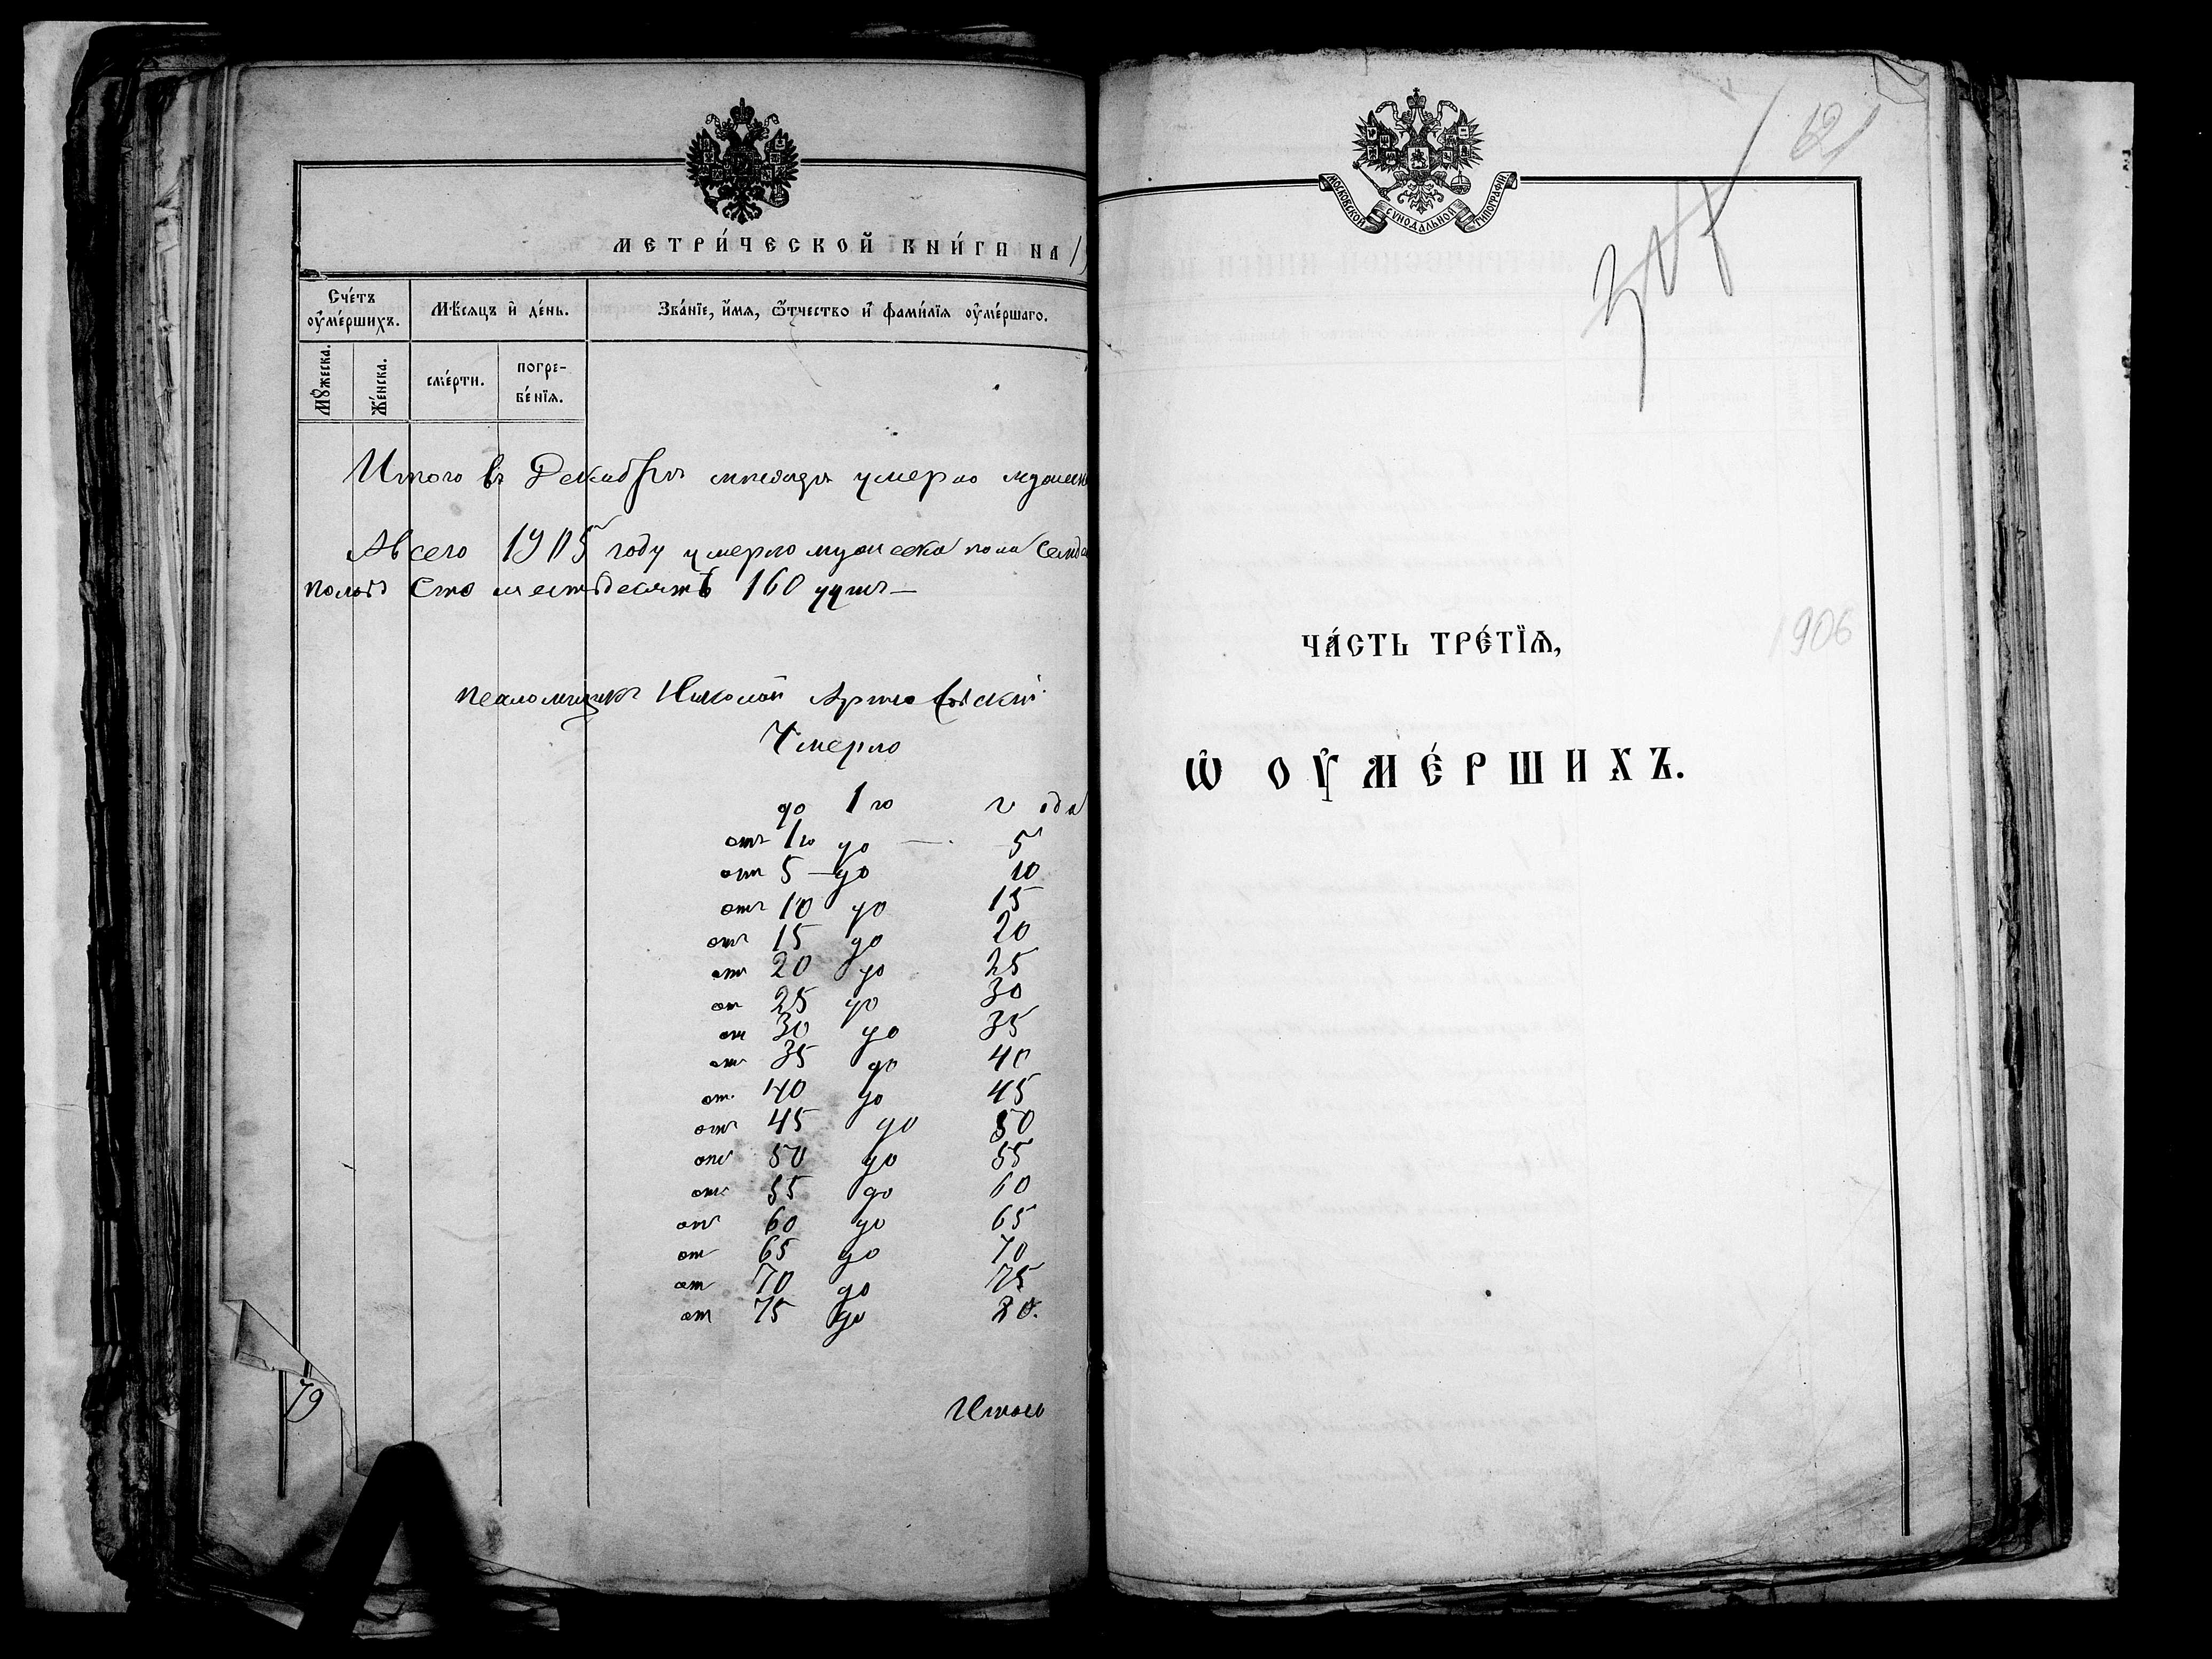 МЕТРИ́ЧЕСКОЙ КНИ́ГИ НА 19
Сче́тъ оу҆ме́ршихъ.
Мѣ́сяцъ и҆ де́нь.
Зва́нїе, и҆́мя, ѻ҆́тчество и҆ фами́лїя оу҆ме́ршаго.
Мꙋ́жеска.
Же́нска.
сме́рти.
погре-
бе́нїя.
Итого въ Декабрѣ месяцѣ умерло
Авсего 1905 году умерло мужеска пола
полов Сто шестьдесятъ 160 душъ—
псаломщикъ Николай
Умерло
до 1го года
отъ 1го до — 5
отъ 5 — до 10
отъ 10 до 15
отъ 15 до 20
от 20 до 25
от 25 до 30
от 30 до 35
от 35 до 40
от 40 до 45
отъ 45 до 50
отъ 50 до 55
отъ 55 до 60
от 60 до 65
от 65 до 70
от 70 до 75
от 75 до 80.
Итого
79
МОСКОВСКОЙ СѴНОДАЛЬНОЙ ТИПОГРАФІИ
621
ЧА́СТЬ ТРЕ́ТЇѦ,
1906
Ѡ҆ ОУ҆МЕ́РШИХЪ.